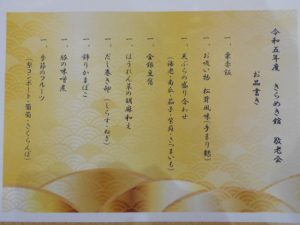 令和五年度 きらめき館 敬老会
お品書き
一、栗赤飯
一、お吸い物 松茸風味(手まり麩)
一、天ぷらの盛り合わせ
(海老・南瓜・茄子・舞茸・さつまいも)
一、金銀豆腐
一、ほうれん草の胡麻和え
一、だし巻き卵(しらす・ねぎ)
一、飾りかまぼこ
一、豚の味噌煮
一、季節のフルーツ
(梨コンポート・葡萄・さくらんぼ)